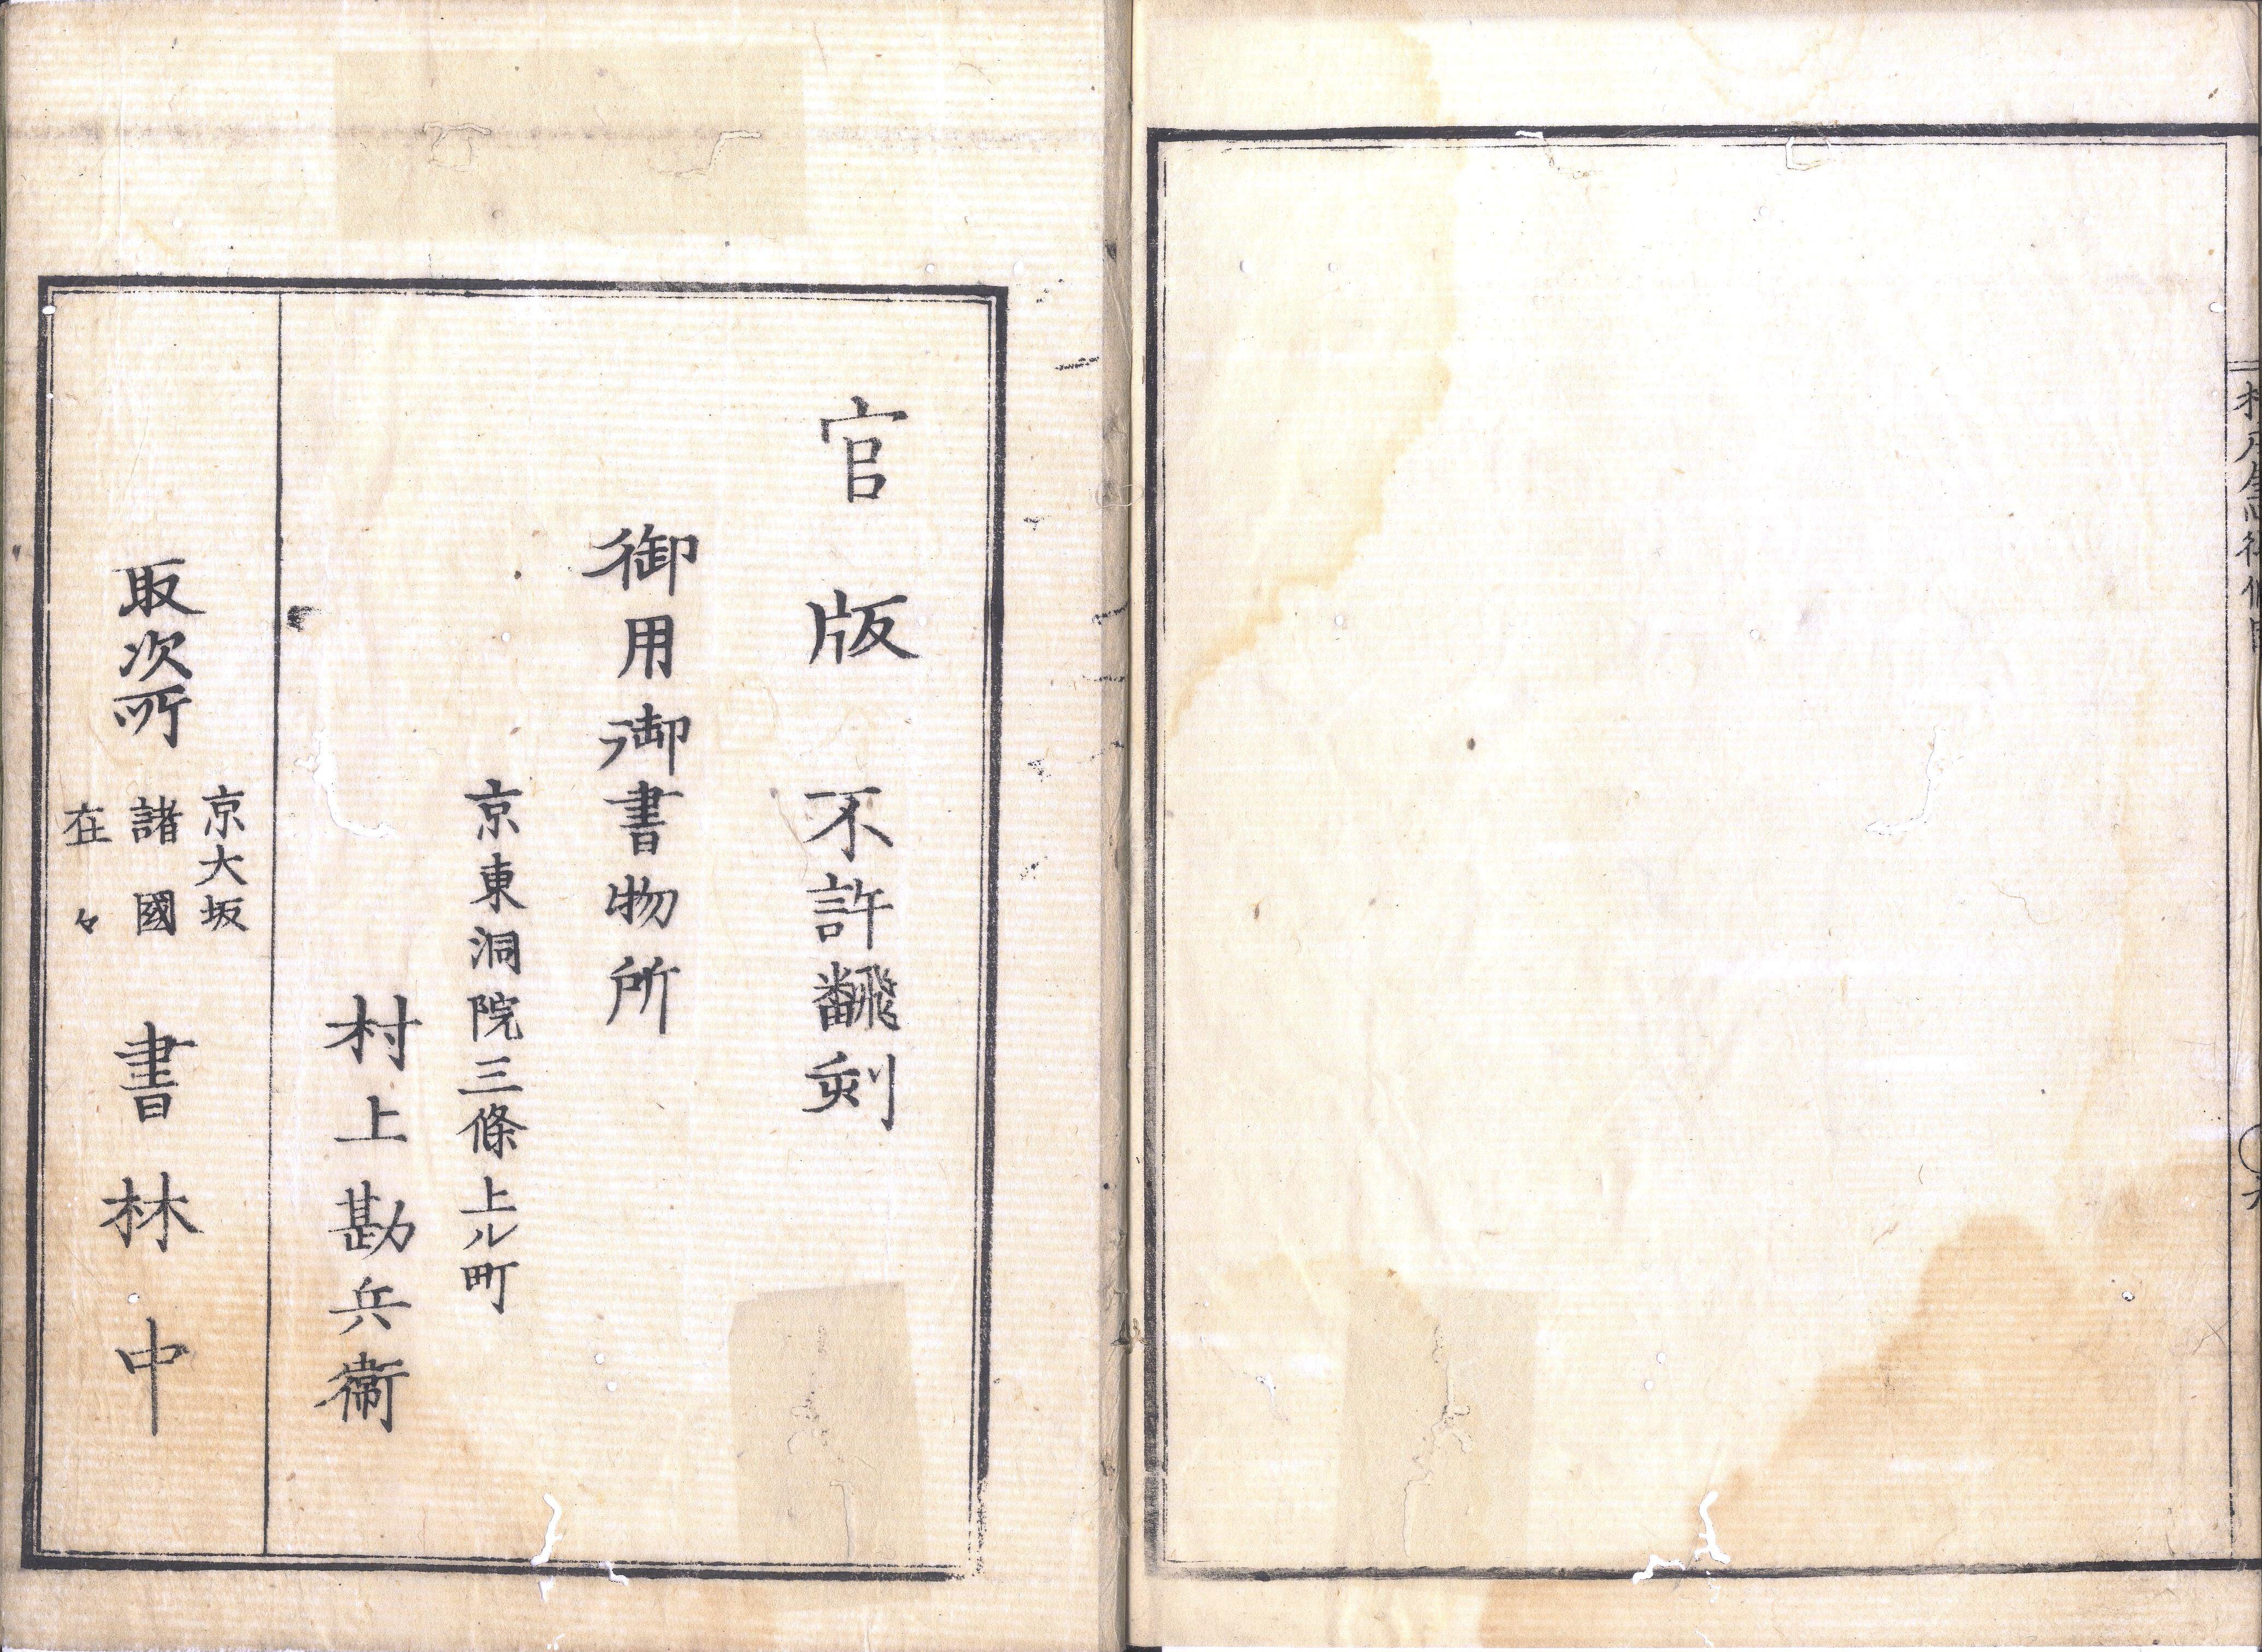 官版 不許飜刻
御用御書物所
京東洞院三條上ル町
村上勘兵衞
取次所
京大坂
諸國
在々
書林中